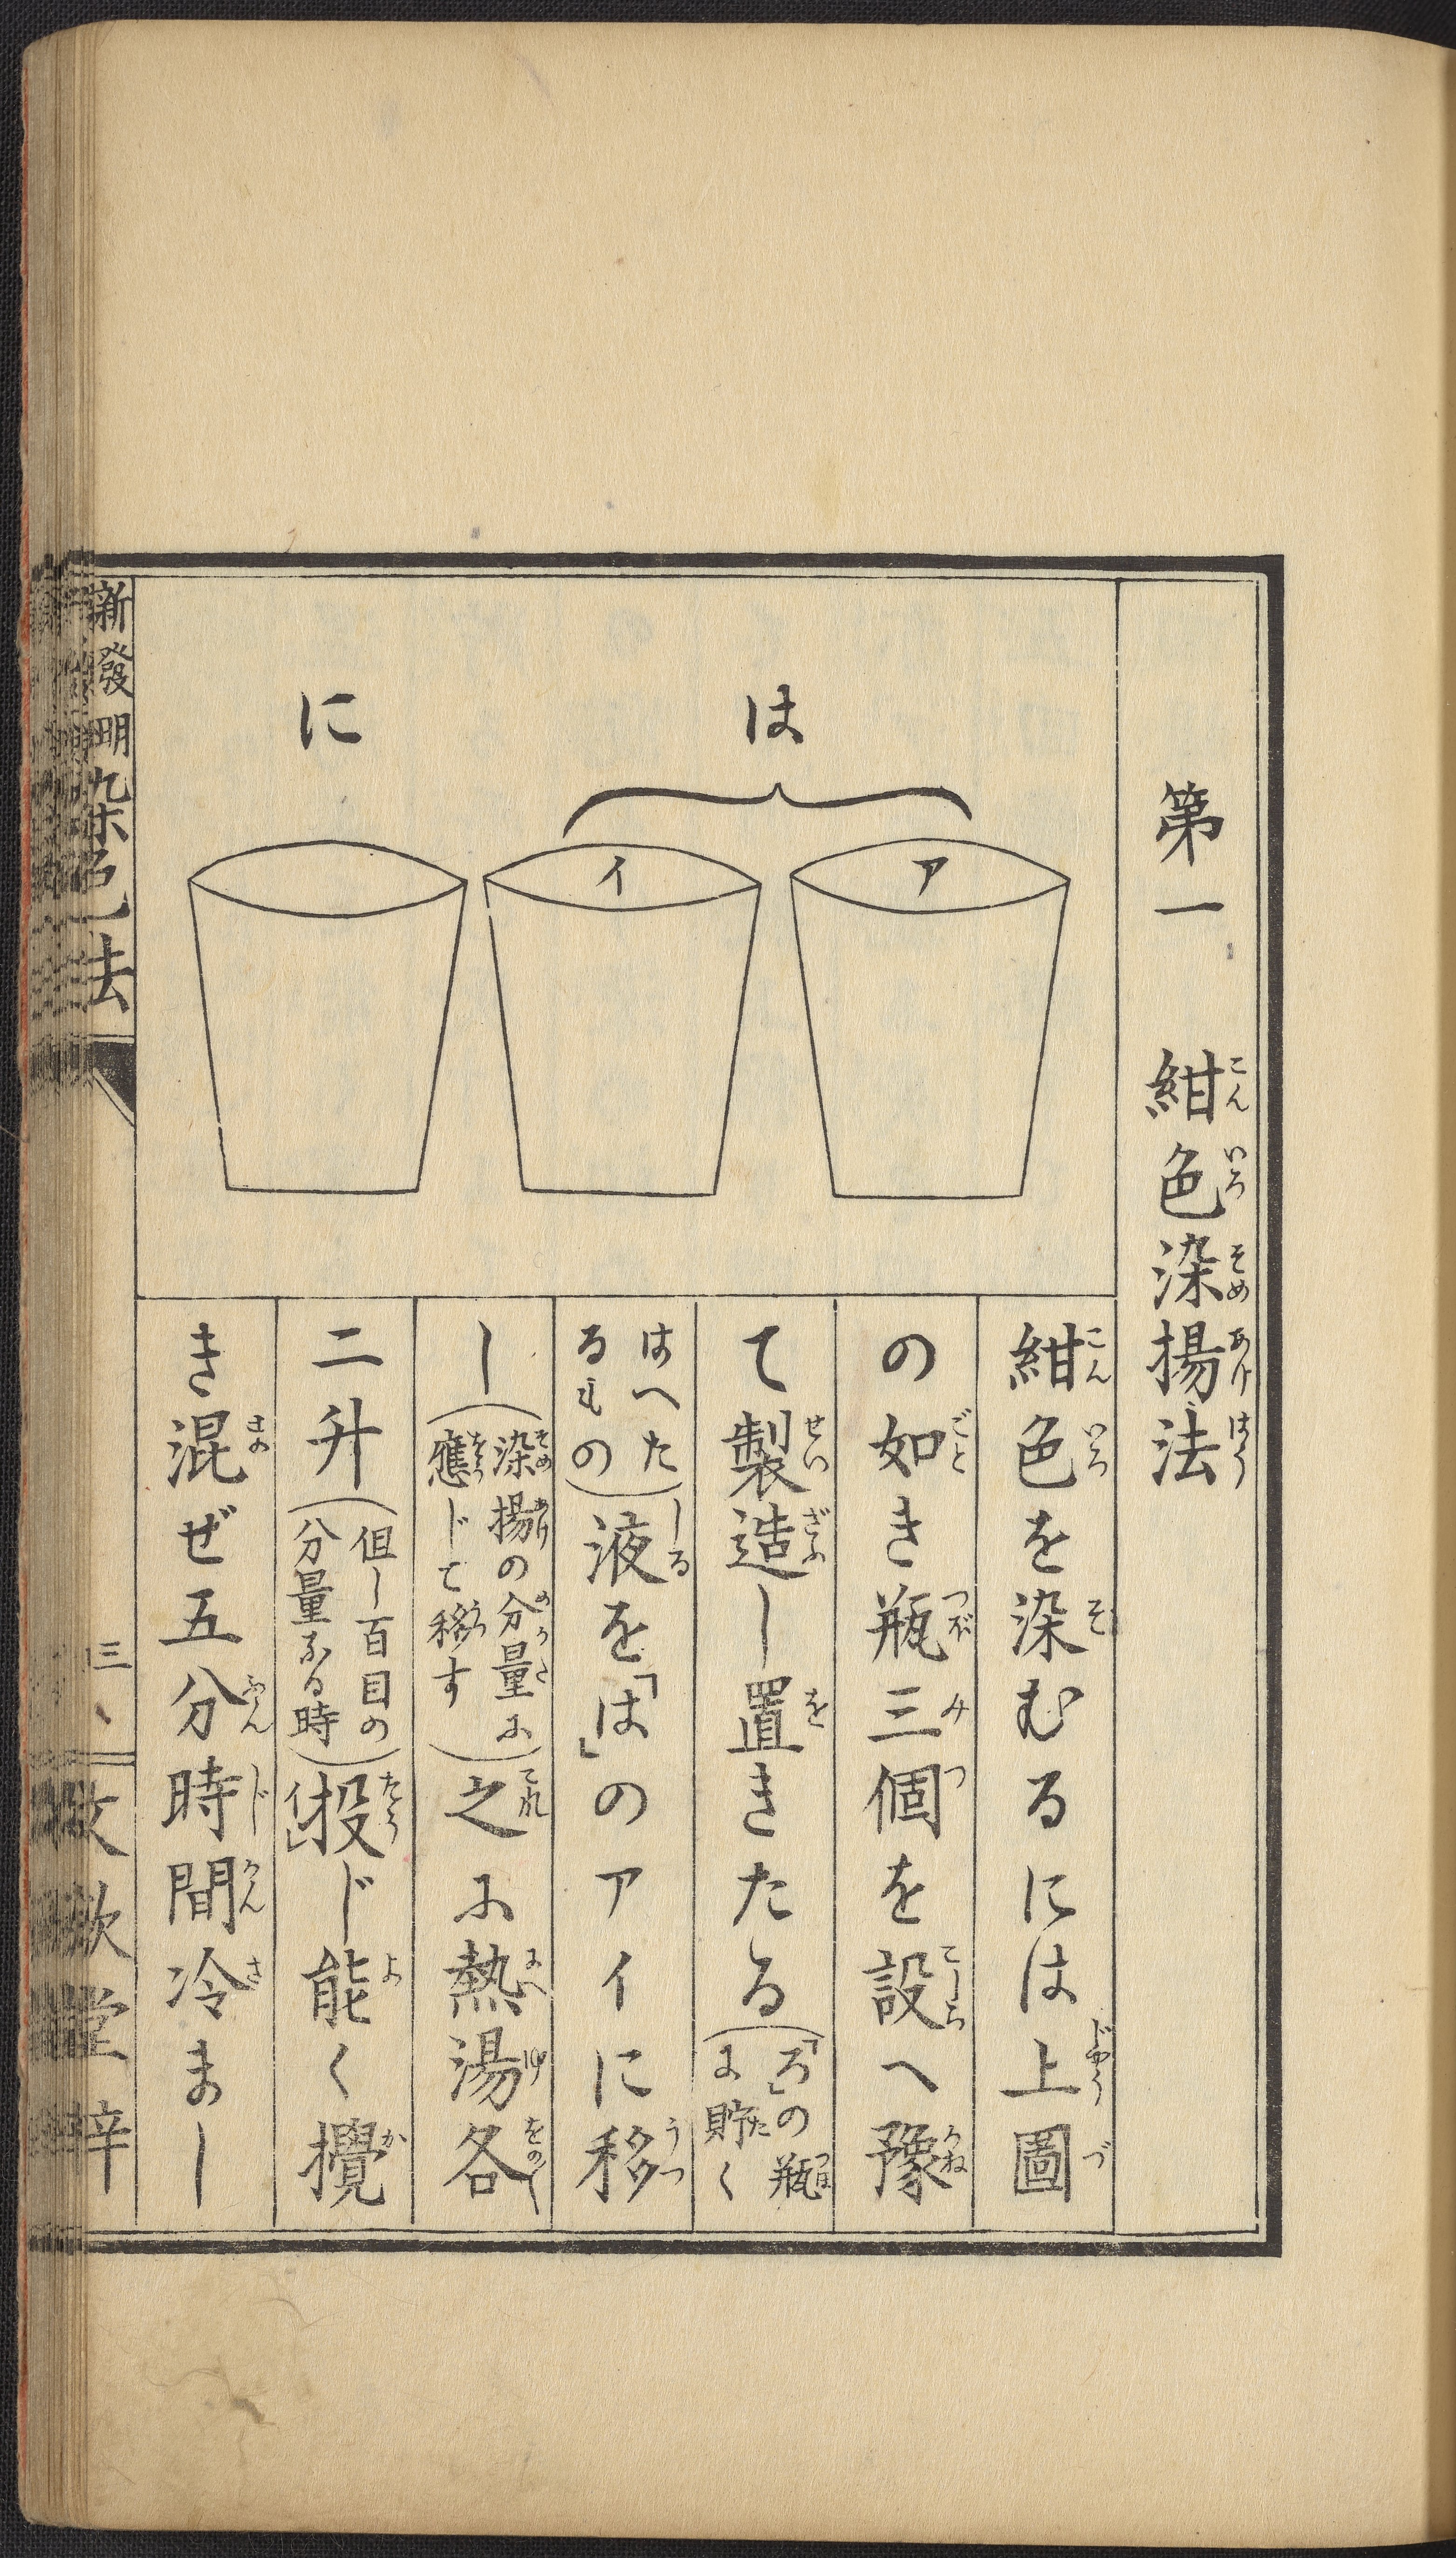 第一　紺色染揚法
は
ア
イ
に
紺色を染むるには上圖
の如き瓶三個を設へ豫
て製造し置きたる（「ろ」の瓶に貯く
はへたるもの）液を「は」のアイに移
し（染揚の分量に應じて移す）之に熱湯各
二升（但し百目の分量なる時）投じ能く攪
き混ぜ五分時間冷まし
新發明染色法
三